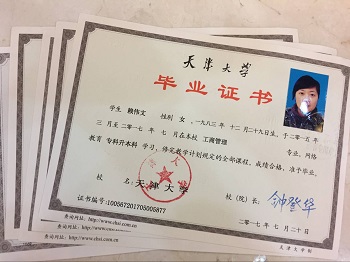 天津大学
毕业证书
学生 赖伟文 性别 女,一九八三年 十二月二十九日生,于二〇一五年
三月至二〇一七年 七月在本校 工商管理 专业,网络
教育 专科升本科 学习,修完教学计划规定的全部课程,成绩合格,准予毕业。
校 名: 天津大学 校(院)长: 钟登华
证书编号:100567201705005877
二〇一七年 七月二十日
查询网址:http://www.chsi.com.cn
天津大学制
查询网址:http://www.chsi.com.cn